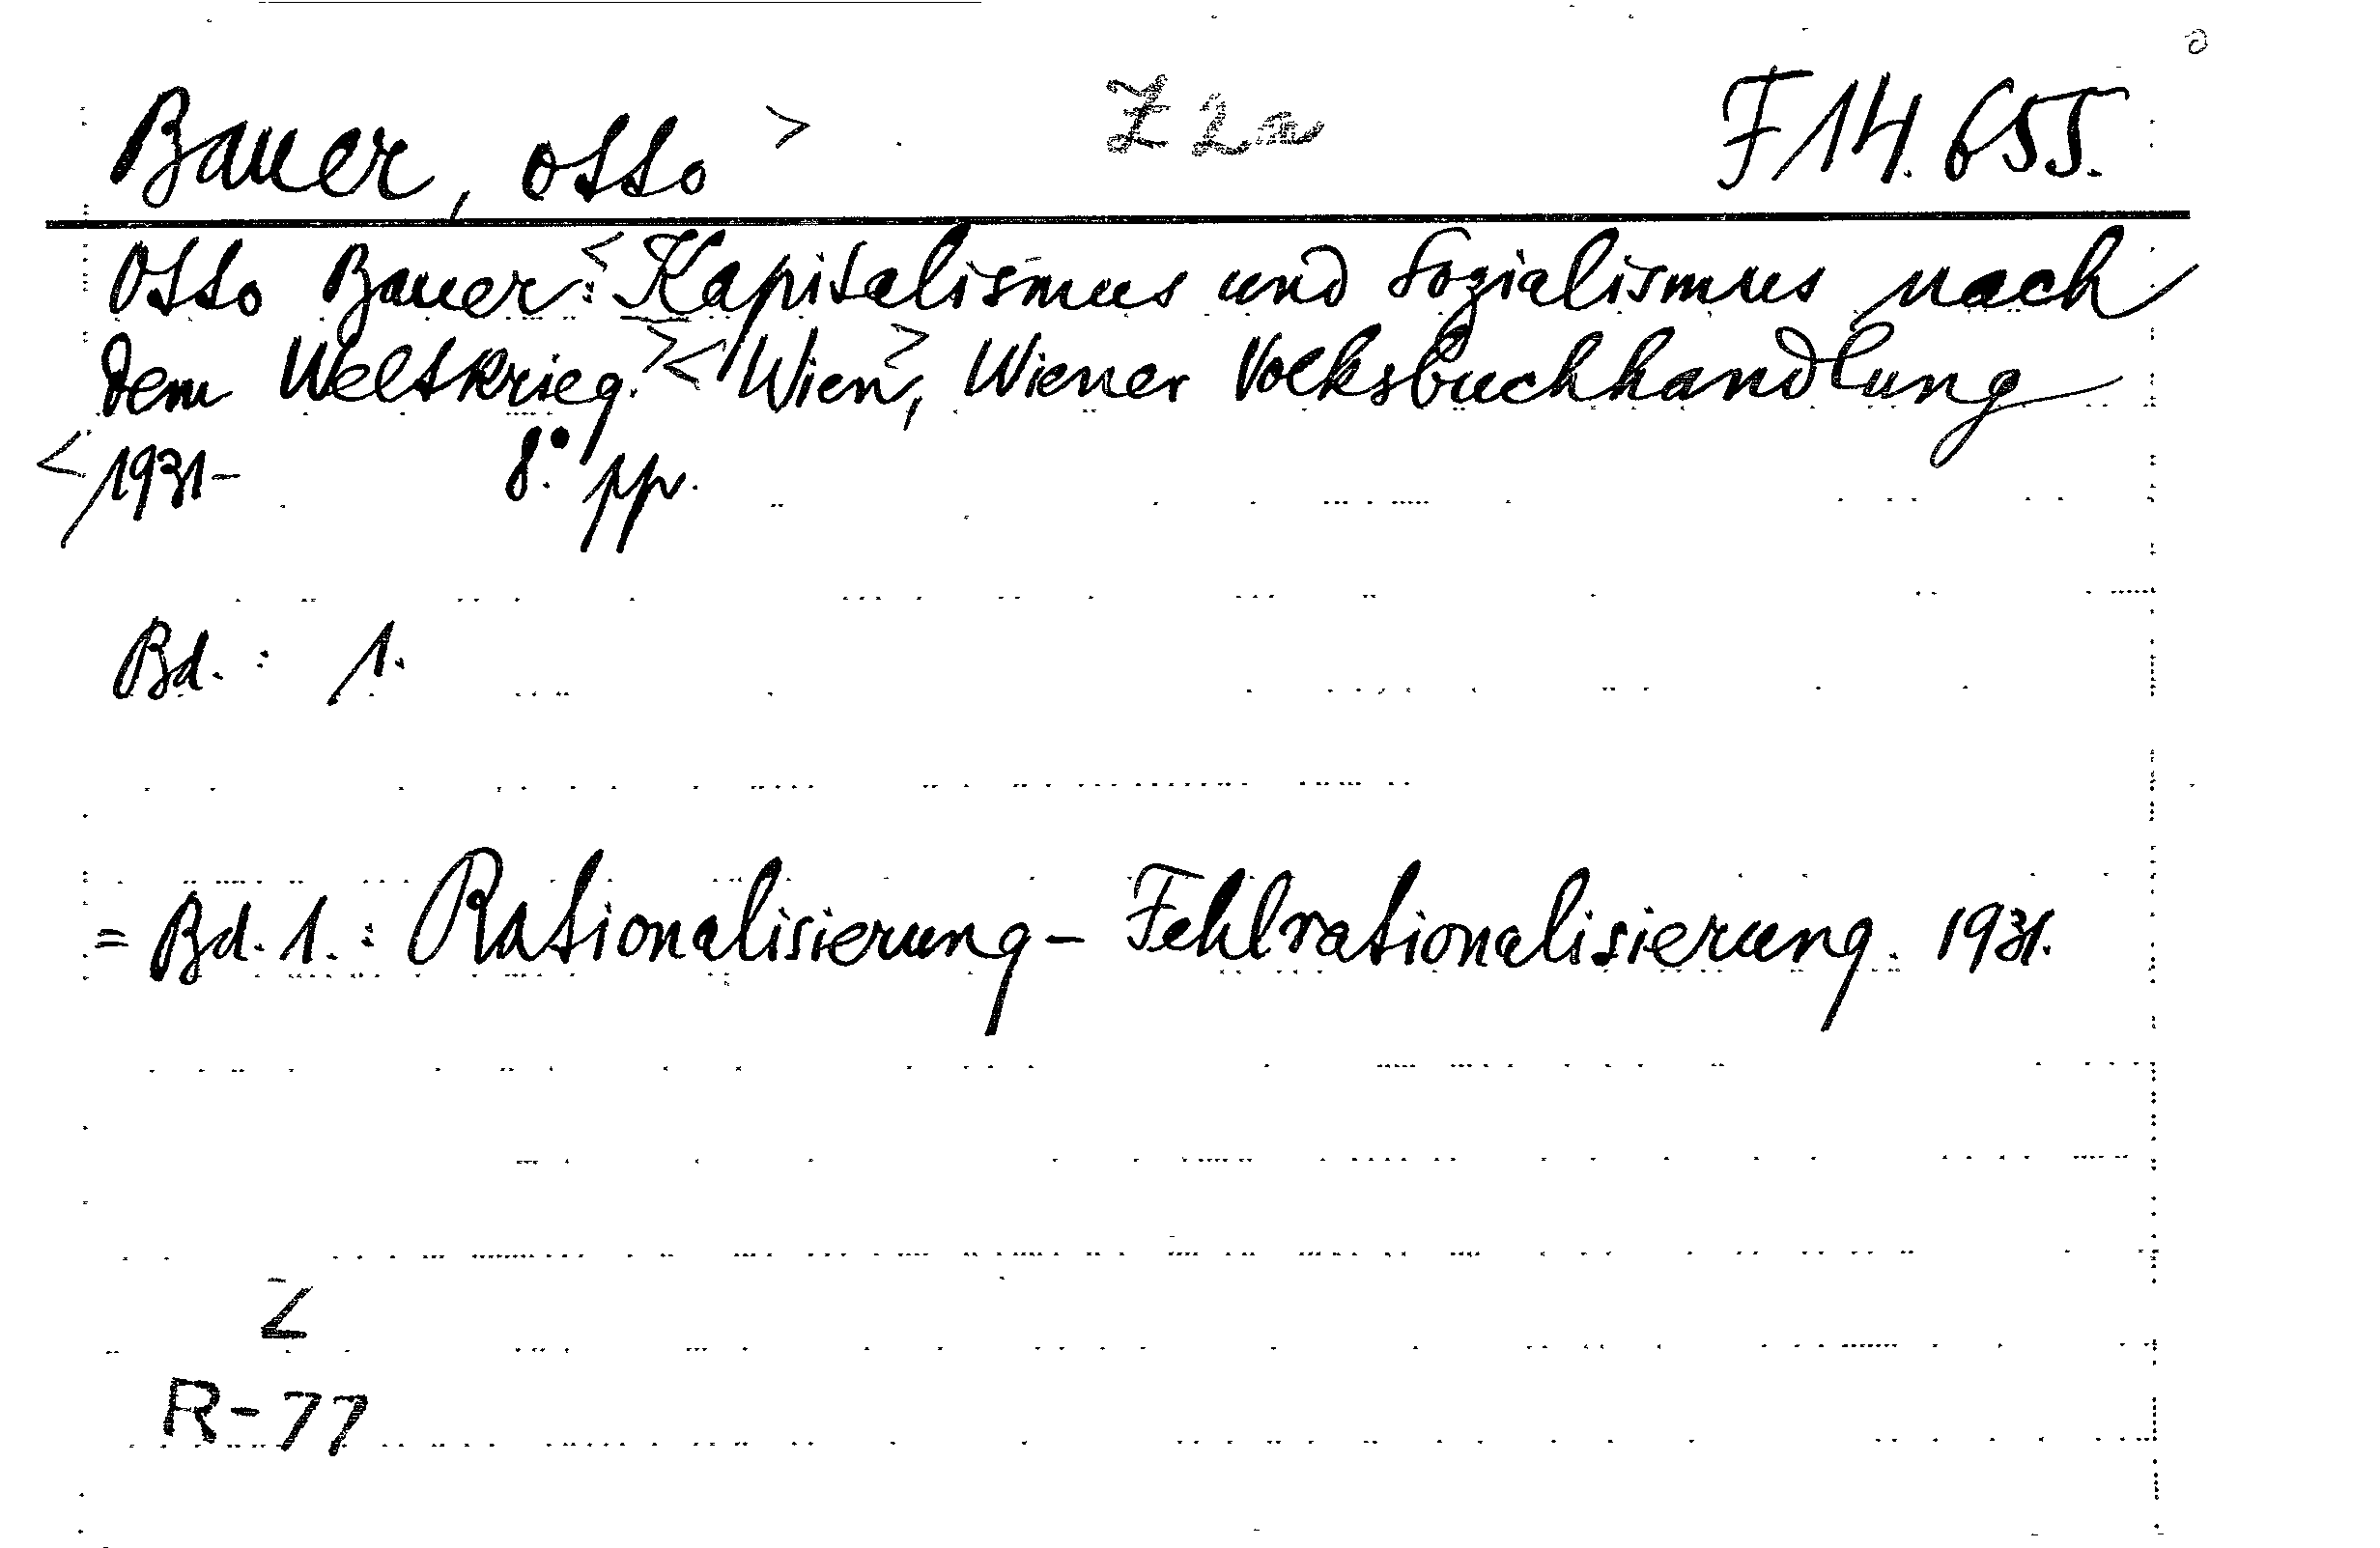 Bauer, Otto > Z 2a F 14.655.
Otto Bauer: <Kapitalismus und Sozialismus nach
dem Weltkrieg.> <Wien>, Wiener Volksbuchhandlung
<1931- 8°. pp.
Bd. : 1.
= Bd. 1. : Rationalisierung - Fehlrationalisierung. 1931.
Z
R-77